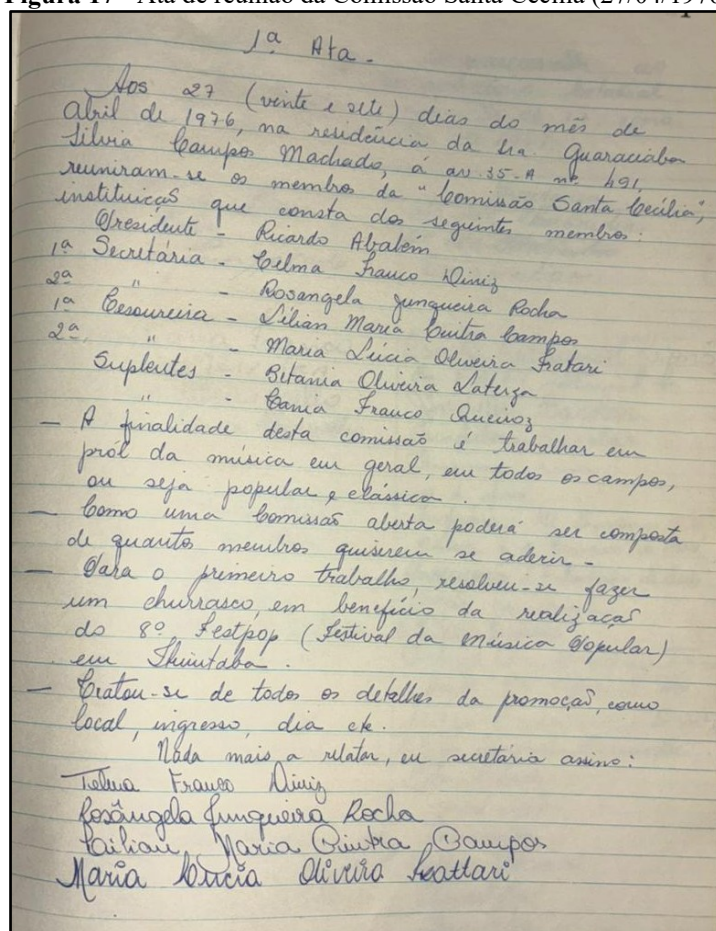 Figura 17 - Ata de reunião da Comissão Santa Cecília (27/04/1976
1ª Ata.
Aos 27 (vinte e sete) dias do mês de
abril de 1976, na residência da Sra. Guaraciaba
Silvia Campos Machado, á av. 35-A nº 491,
reuniram-se os membros da "Comissão Santa Cecília",
instituição que consta dos seguintes membros:
Presidente - Ricardo Abalém
1ª Secretária - Telma Franco Diniz
2ª " - Rosangela Junqueira Rocha
1ª Tesoureira - Lilian Maria Cuitra Campos
2ª " - Maria Lúcia Oliveira Fratari
Suplentes - Betania Oliveira Laterza
" - Tania Franco Queiroz
- A finalidade desta comissão é trabalhar em
pról da música em geral, em todos os campos,
ou seja popular e clássica.
- Como uma Comissão aberta poderá ser composta
de quantos membros quiserem se aderir -
- Para o primeiro trabalho, resolveu-se fazer
um churrasco, em benefício da realização
do 8º Festpop (Festival da Música Popular)
em Ituiutaba.
- Tratou-se de todos os detalhes da promoção, como
local, ingresso, dia etc.
Nada mais a relatar, eu secretária assino:
Telma Franco Diniz
Rosângela Junqueira Rocha
Lilian Maria Campos
Maria Lúcia Oliveira Frattari